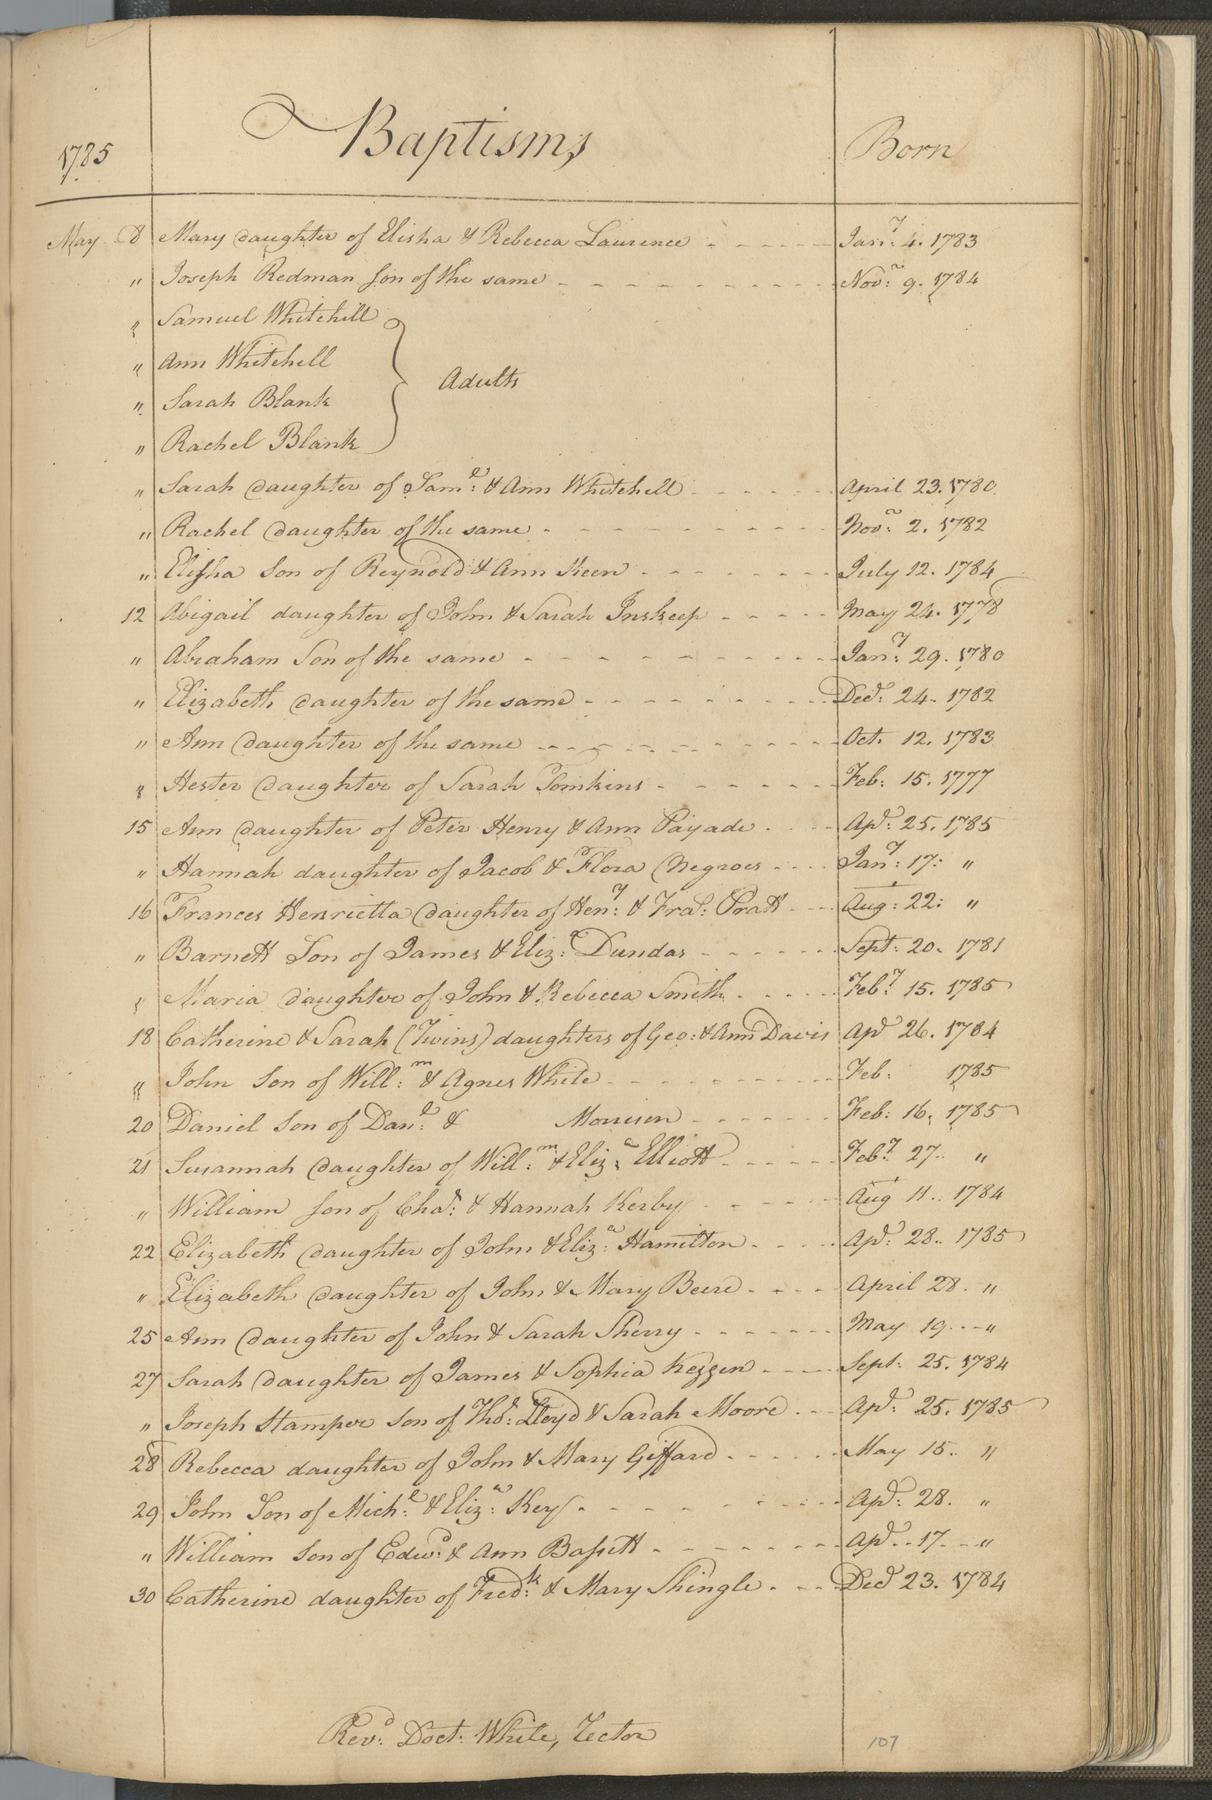 1785 Baptisms Born
May 8 Mary daughter of Elisha & Rebecca Laurence - - - - - Jany. 4. 1783
" Joseph Redman son of the same - - - - - - - - - - Novr. 9. 1784
" Samuel Whitehill
" Ann Whitehill
Adults
" Sarah Blank
" Rachel Blank
" Sarah daughter of Saml. & Ann Whitehill - - - - - - April 23. 1780
" Rachel daughter of the same - - - - - - - - - - Novr. 2. 1782
" Elisha Son of Reynold & Ann Keen - - - - - - - July 12. 1784
12 Abigail daughter of John & Sarah Inskeep - - - - - May 24. 1778
" Abraham Son of the same - - - - - - - - - - Jany. 29. 1780
" Elizabeth daughter of the same - - - - - - - - - Decr. 24. 1782
" Ann daughter of the same - - - - - - - - - - Oct. 12. 1783
" Hester daughter of Sarah Tomkins - - - - - - - Feb: 15. 1777
15 Ann daughter of Peter Henry & Ann Payade - - - - Apl: 25. 1785
" Hannah daughter of Jacob & Flora (Negroes - - - - Jany: 17: "
16 Frances Henrietta daughter of Heny: & Fras: Pratt - - - Aug: 22: "
" Barnett Son of James & Eliza: Dundas - - - - - - Sept: 20. 1781
" Maria daughter of John & Rebecca Smith - - - - - Feby. 15. 1785
18 Catherine & Sarah (Twins) daughters of Geo: & Ann Davis Apl 26. 1784
" John Son of Willm: & Agnes White - - - - - - - - Feb: 1785
20 Daniel Son of Danl: & Morrison - - - - - - Feb: 16. 1785
21 Susannah daughter of Willm: & Eliza: Elliott - - - - - Feby. 27. "
" William son of Chas: & Hannah Kerby - - - - - - Aug 11. 1784
22 Elizabeth daughter of John & Eliza: Hamilton - - - - Apl: 28. 1785
" Elizabeth daughter of John & Mary Beere - - - - April 28. "
25 Ann daughter of John & Sarah Sherry - - - - - - - May 19 - - "
27 Sarah daughter of James & Sophia Kezzen - - - - Sept: 25. 1784
" Joseph Stamper son of Thos: Lloyd & Sarah Moore - - - Apl: 25. 1785
28 Rebecca daughter of John & Mary Giffard - - - - - May 15. "
29 John Son of Michl: & Eliza: Key - - - - - - - - - Apl: 28. "
" William Son of Edwd: & Ann Bassett - - - - - - - - Apl - 17 - - "
30 Catherine daughter of Fredk: & Mary Shingle - - - Decr 23. 1784
Revd: Doct: White, Rector
107